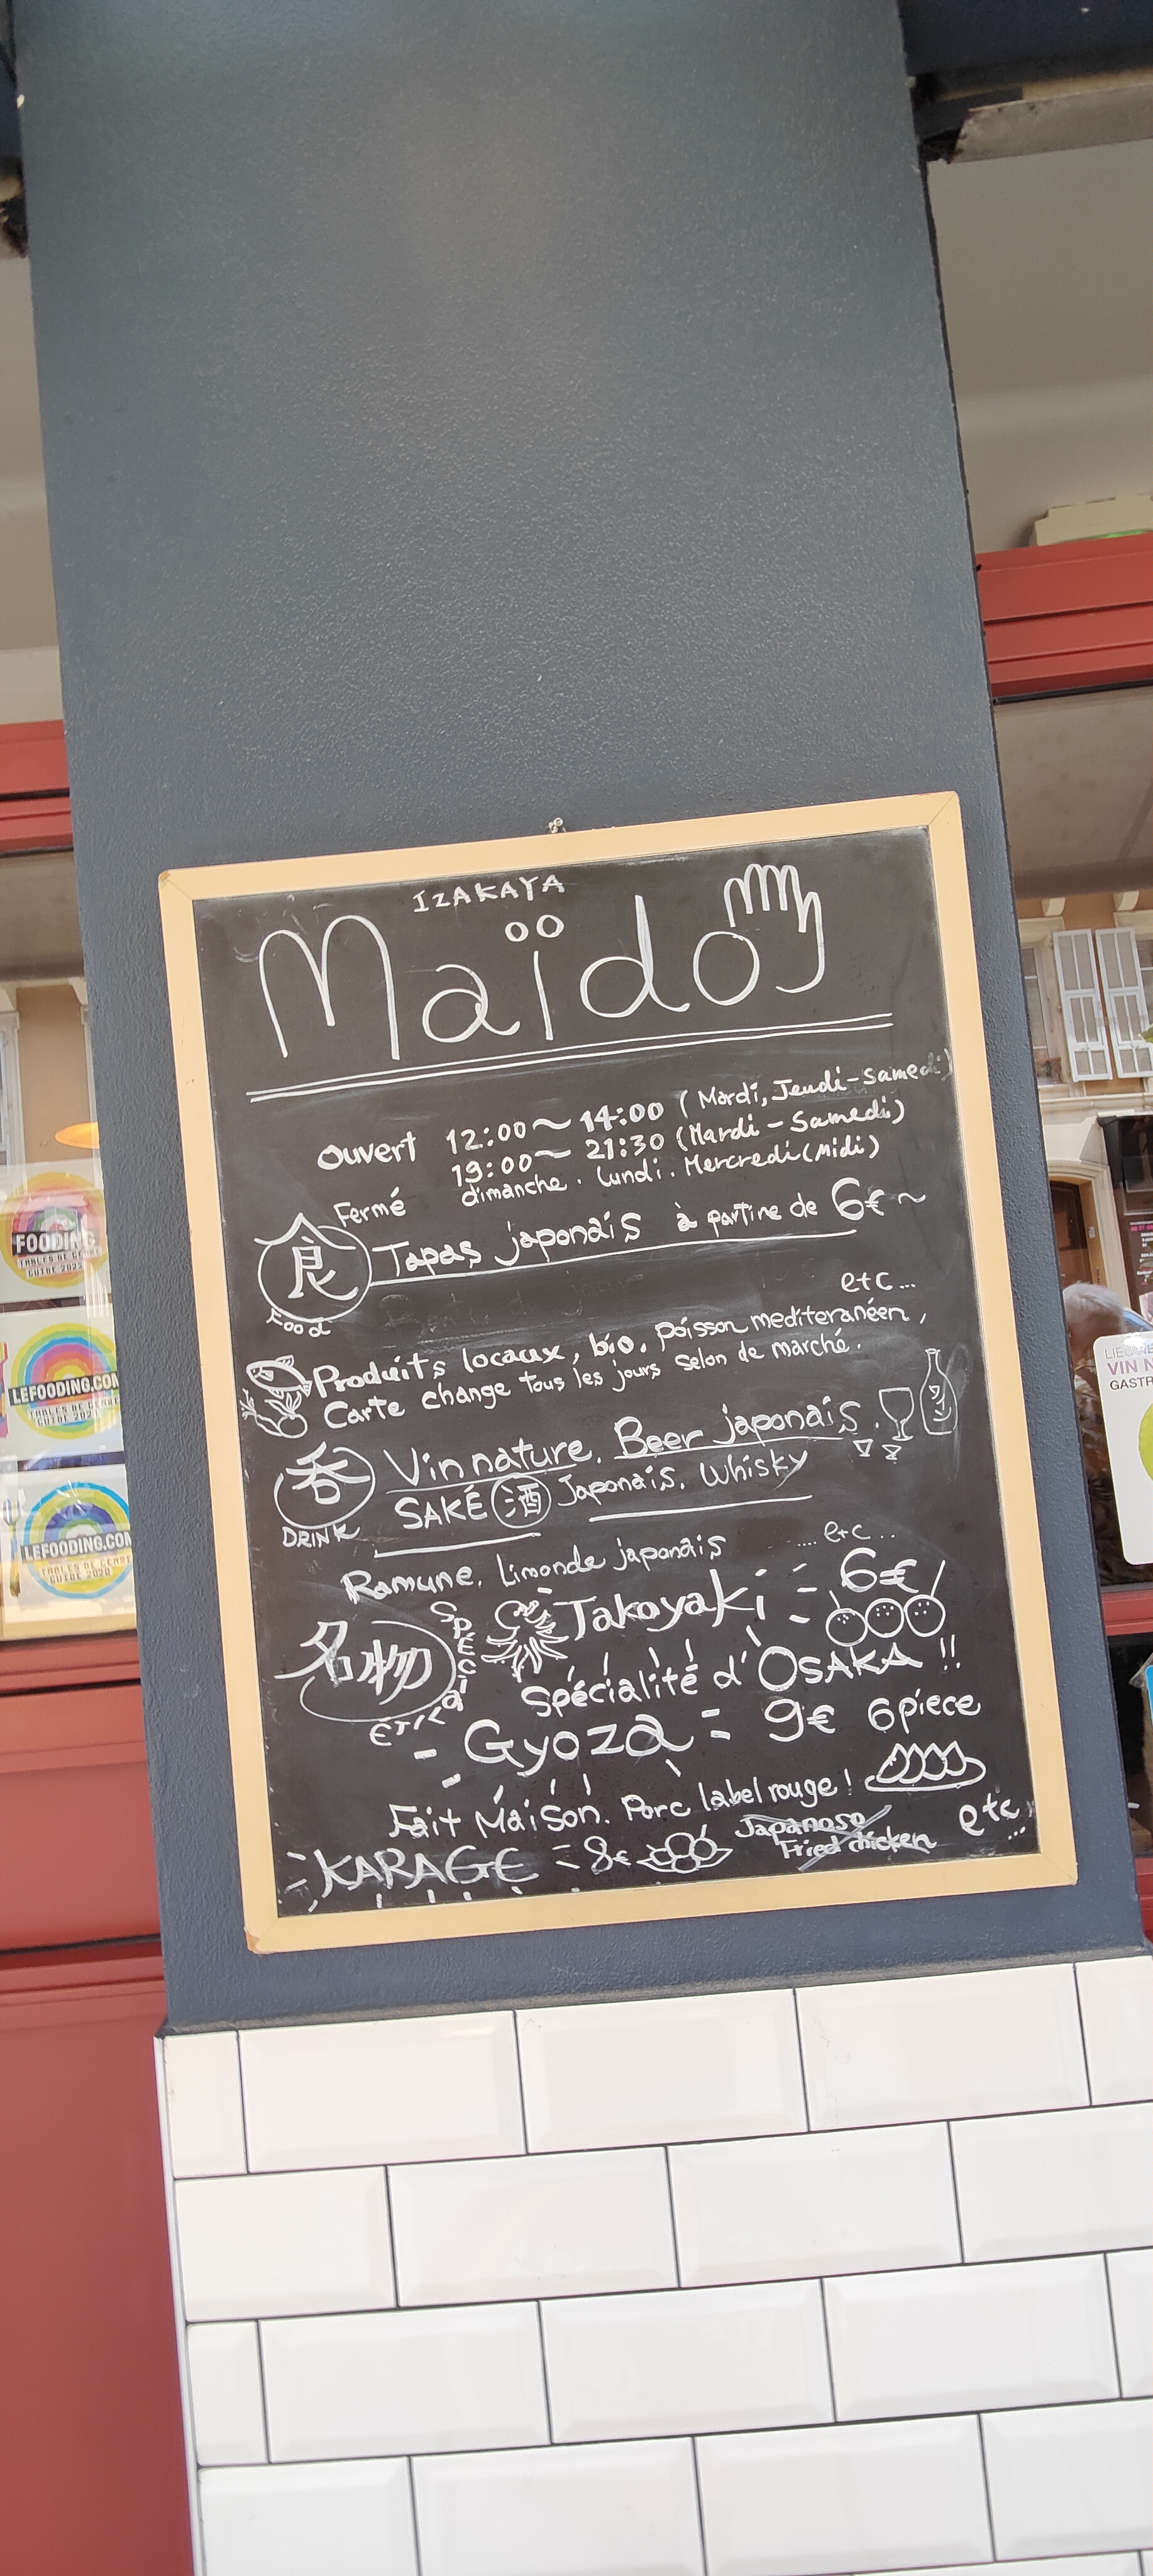 IZAKAYA
Maïdo
Ouvert 12:00～14:00 (Mardi, Jeudi-Samedi)
19:00～21:30 (Mardi-Samedi)
Fermé dimanche. lundi. Mercredi(Midi)
食 Food
Tapas japonais à partire de 6€～
etc...
Produits locaux, bio, poisson mediteranéen,
Carte change tous les jours selon de marché.
呑 DRINK
Vin nature. Beer japonais.
SAKÉ 酒 Japonais. Whisky
Ramune. Limonde japonais .... etc...
名物 Spécial
Takoyaki = 6€
Spécialité d'OSAKA !!
Gyoza = 9€ 6piece
Fait Maison. Porc label rouge!
KARAGE = 8€
Fried chicken
etc...
FOODING
TABLES DE GENRE
GUIDE 2022
LEFOODING.COM
TABLES DE GENRE
LEFOODING.COM
TABLES DE GENRE
GUIDE 2020
VIN N
GASTR